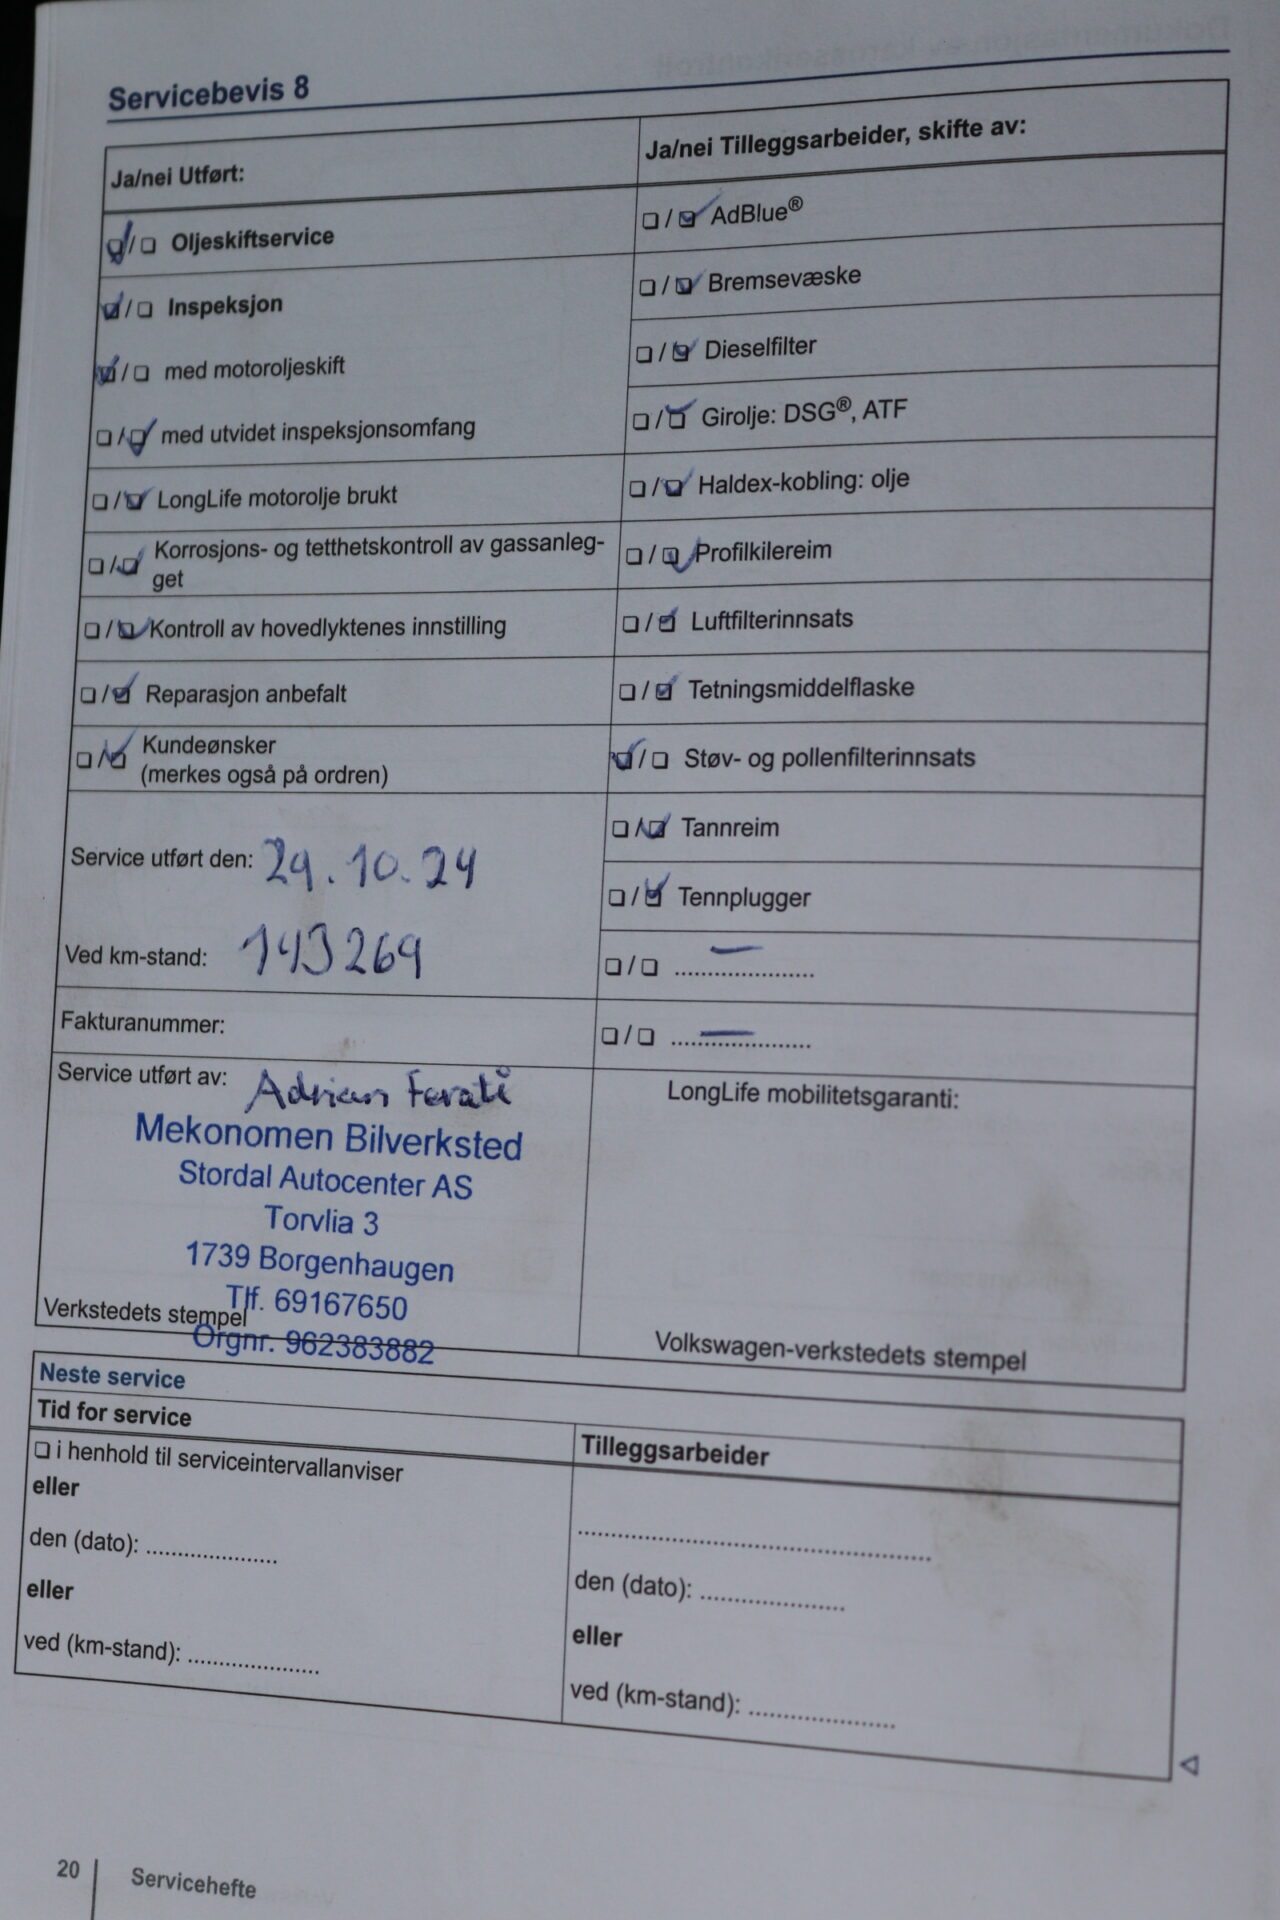 Servicebevis 8
Ja/nei Utført:
☑/☐ Oljeskiftservice
☑/☐ Inspeksjon
☑/☐ med motoroljeskift
☐/☑ med utvidet inspeksjonsomfang
☐/☑ LongLife motorolje brukt
☐/☑ Korrosjons- og tetthetskontroll av gassanleg-
get
☐/☑ Kontroll av hovedlyktenes innstilling
☐/☑ Reparasjon anbefalt
☐/☑ Kundeønsker
(merkes også på ordren)
Service utført den: 29.10.24
Ved km-stand: 143269
Fakturanummer:
Service utført av: Adrian Ferati
Mekonomen Bilverksted
Stordal Autocenter AS
Torvlia 3
1739 Borgenhaugen
Tlf. 69167650
Verkstedets stempel
Orgnr. 962383882
Ja/nei Tilleggsarbeider, skifte av:
☐/☑ AdBlue®
☐/☑ Bremsevæske
☐/☑ Dieselfilter
☐/☑ Girolje: DSG®, ATF
☐/☑ Haldex-kobling: olje
☐/☑ Profilkilereim
☐/☑ Luftfilterinnsats
☐/☑ Tetningsmiddelflaske
☑/☐ Støv- og pollenfilterinnsats
☐/☑ Tannreim
☐/☑ Tennplugger
☐/☐ .....................
☐/☐ .....................
LongLife mobilitetsgaranti:
Volkswagen-verkstedets stempel
Neste service
Tid for service
☐ i henhold til serviceintervallanviser
eller
den (dato): .....................
eller
ved (km-stand): .....................
Tilleggsarbeider
.....................................................
den (dato): .......................
eller
ved (km-stand): .......................
20 | Servicehefte